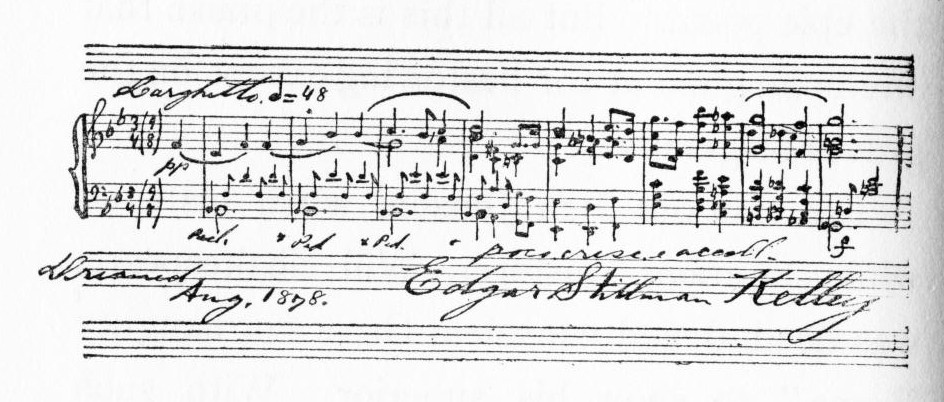 Larghetto. 𝅗𝅥=48
3/4 (9/8)
pp
3/4 (9/8)
Ped. * Ped * Ped. *
poco cresc. e accell.
f
Dreamed
Aug, 1878.
Edgar Stillman Kelley